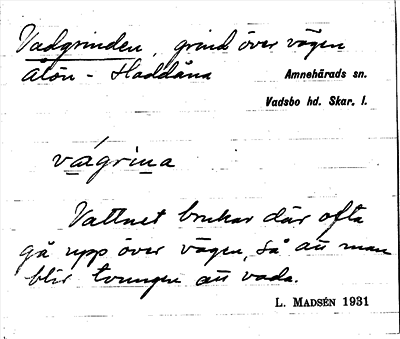 Vadgrinden, grind över vägen
Ålön - Haddåna
Amnehärads sn.
Vadsbo hd. Skar. l.
vágrina
Vattnet brukar där ofta
gå upp över vägen, så att man
blir tvungen att vada.
L. MADSÉN 1931